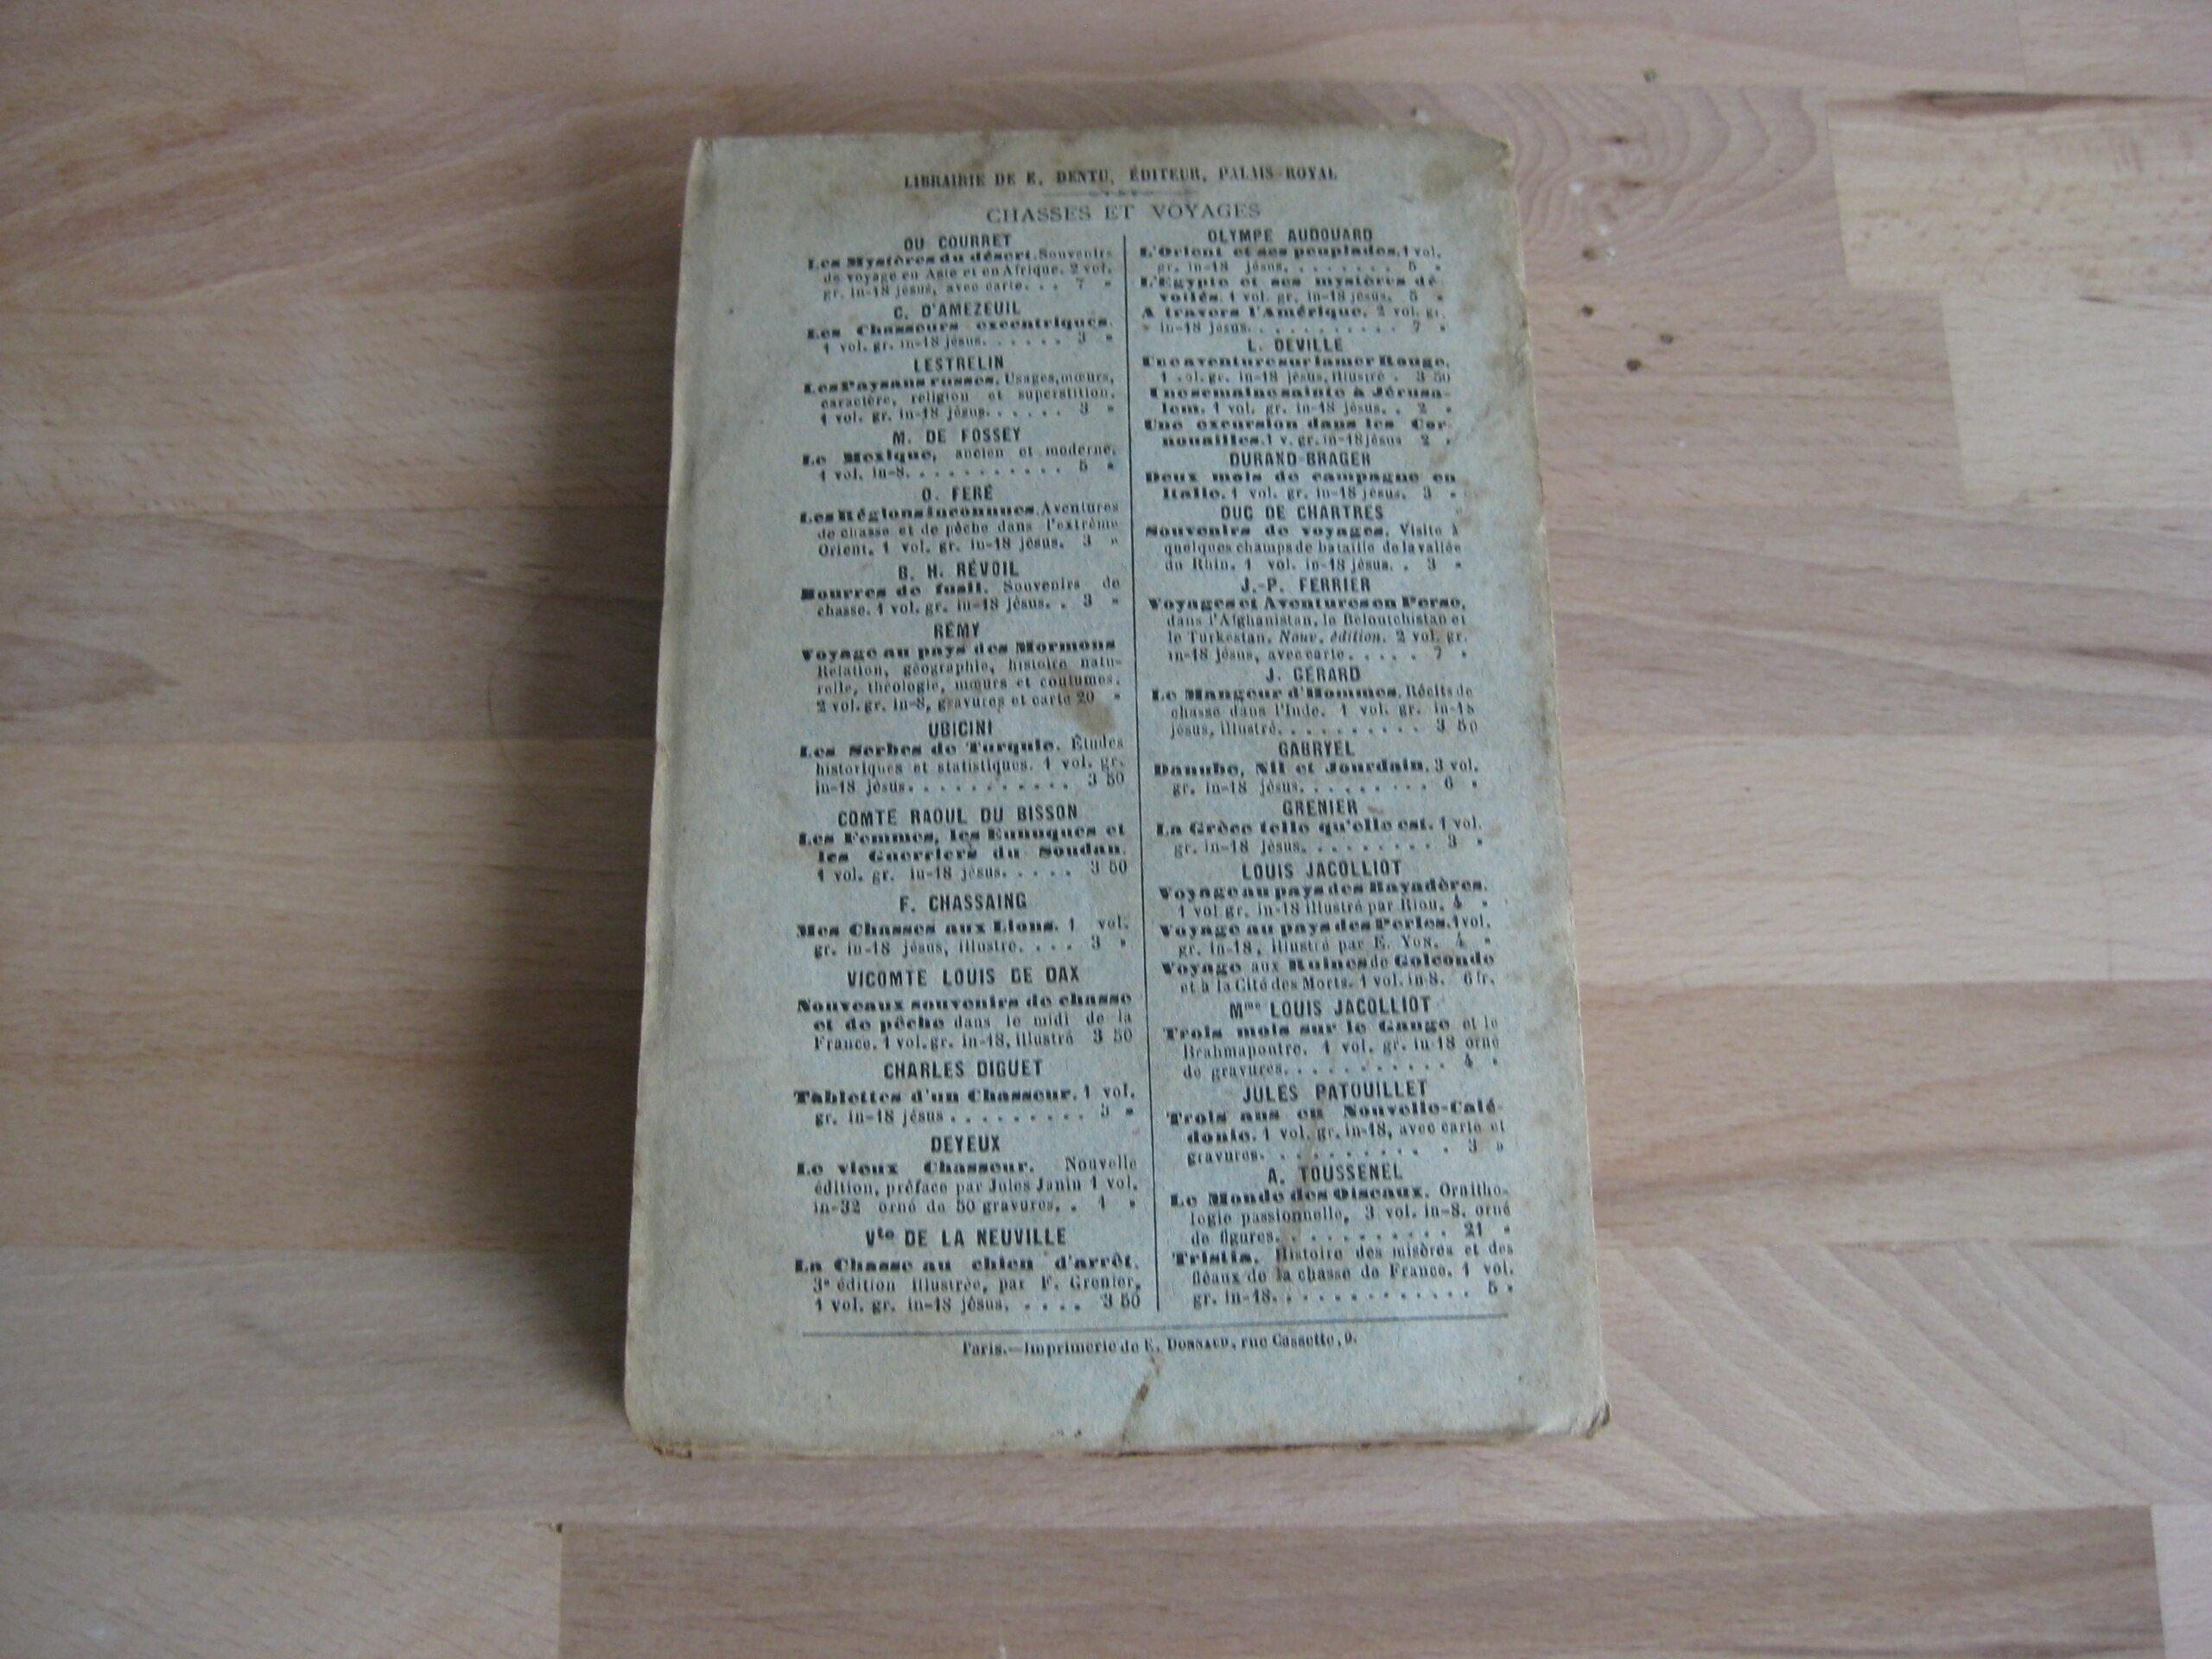 LIBRAIRIE DE E. DENTU, ÉDITEUR, PALAIS-ROYAL
CHASSES ET VOYAGES
DU COURRET
Les Mystères du désert. Souvenirs
de voyage en Asie et en Afrique. 2 vol.
gr. in-18 jésus, avec carte. . . 7 »
C. D'AMEZEUIL
Les Chasseurs excentriques.
1 vol. gr. in-18 jésus. . . . . . 3 »
LESTRELIN
Les Paysans russes. Usages, mœurs,
caractère, religion et superstition.
1 vol. gr. in-18 jésus. . . . . . 3 »
M. DE FOSSEY
Le Mexique, ancien et moderne.
1 vol. in-8. . . . . . . . . . . 5 »
O. FERÉ
Les Régions inconnues. Aventures
de chasse et de pêche dans l'extrême
Orient. 1 vol. gr. in-18 jésus. 3 »
B. H. RÉVOIL
Bourres de fusil. Souvenirs de
chasse. 1 vol. gr. in-18 jésus. . 3 »
RÉMY
Voyage au pays des Mormons
Relation, géographie, histoire natu-
relle, théologie, mœurs et coutumes.
2 vol. gr. in-8, gravures et carte 20 »
UBICINI
Les Serbes de Turquie. Études
historiques et statistiques. 1 vol. gr.
in-18 jésus. . . . . . . . . . . 3 50
COMTE RAOUL DU BISSON
Les Femmes, les Eunuques et
les Guerriers du Soudan.
1 vol. gr. in-18 jésus. . . . . 3 50
F. CHASSAING
Mes Chasses aux Lions. 1 vol.
gr. in-18 jésus, illustré. . . . 3 »
VICOMTE LOUIS DE DAX
Nouveaux souvenirs de chasse
et de pêche dans le midi de la
France. 1 vol. gr. in-18, illustré 3 50
CHARLES DIGUET
Tablettes d'un Chasseur. 1 vol.
gr. in-18 jésus . . . . . . . . . 3 »
DEYEUX
Le vieux Chasseur. Nouvelle
édition, préface par Jules Janin 1 vol.
in-32 orné de 50 gravures. . 1 »
Vte DE LA NEUVILLE
La Chasse au chien d'arrêt.
3e édition illustrée, par F. Grenier,
1 vol. gr. in-18 jésus. . . . . 3 50
OLYMPE AUDOUARD
L'Orient et ses peuplades. 1 vol.
gr. in-18 jésus. . . . . . . . 5 »
L'Egypte et ses mystères dé-
voilés. 1 vol. gr. in-18 jésus. 5 »
A travers l'Amérique. 2 vol. gr.
in-18 jésus. . . . . . . . . . . 7 »
L. DEVILLE
Une aventure sur la mer Rouge.
1 vol. gr. in-18 jésus, illustré . 3 50
Une semaine sainte à Jérusa-
lem. 1 vol. gr. in-18 jésus. . 2 »
Une excursion dans les Cor-
nouailles. 1 v. gr. in-18 jésus 2 »
DURAND-BRAGER
Deux mois de campagne en
Italie. 1 vol. gr. in-18 jésus. 3 »
DUC DE CHARTRES
Souvenirs de voyages. Visite à
quelques champs de bataille de la vallée
du Rhin. 1 vol. in-18 jésus. . 3 »
J.-P. FERRIER
Voyages et Aventures en Perse,
dans l'Afghanistan, le Beloutchistan et
le Turkestan. Nouv. édition. 2 vol. gr.
in-18 jésus, avec carte. . . . . 7 »
J. GÉRARD
Le Mangeur d'Hommes. Récits de
chasse dans l'Inde. 1 vol. gr. in-18
jésus, illustré. . . . . . . . . . 3 50
GABRYEL
Danube, Nil et Jourdain. 3 vol.
gr. in-18 jésus. . . . . . . . . 6 »
GRENIER
La Grèce telle qu'elle est. 1 vol.
gr. in-18 jésus. . . . . . . . . 3 »
LOUIS JACOLLIOT
Voyage au pays des Bayadères.
1 vol gr. in-18 illustré par Riou. 4 »
Voyage au pays des Perles. 1 vol.
gr. in-18, illustré par E. Yon. 4 »
Voyage aux Ruines de Golconde
et à la Cité des Morts. 1 vol. in-8. 6 fr.
Mme LOUIS JACOLLIOT
Trois mois sur le Gange et le
Brahmapoutre. 1 vol. gr. in-18 orné
de gravures. . . . . . . . . . . 4 »
JULES PATOUILLET
Trois ans en Nouvelle-Calé-
donie. 1 vol. gr. in-18, avec carte et
gravures. . . . . . . . . . . . 3 »
A. TOUSSENEL
Le Monde des Oiseaux. Ornitho-
logie passionnelle, 3 vol. in-8. orné
de figures. . . . . . . . . . . 21 »
Tristia. Histoire des misères et des
fléaux de la chasse de France. 1 vol.
gr. in-18. . . . . . . . . . . . 5 »
Paris.—Imprimerie de E. DONNAUD, rue Cassette, 9.